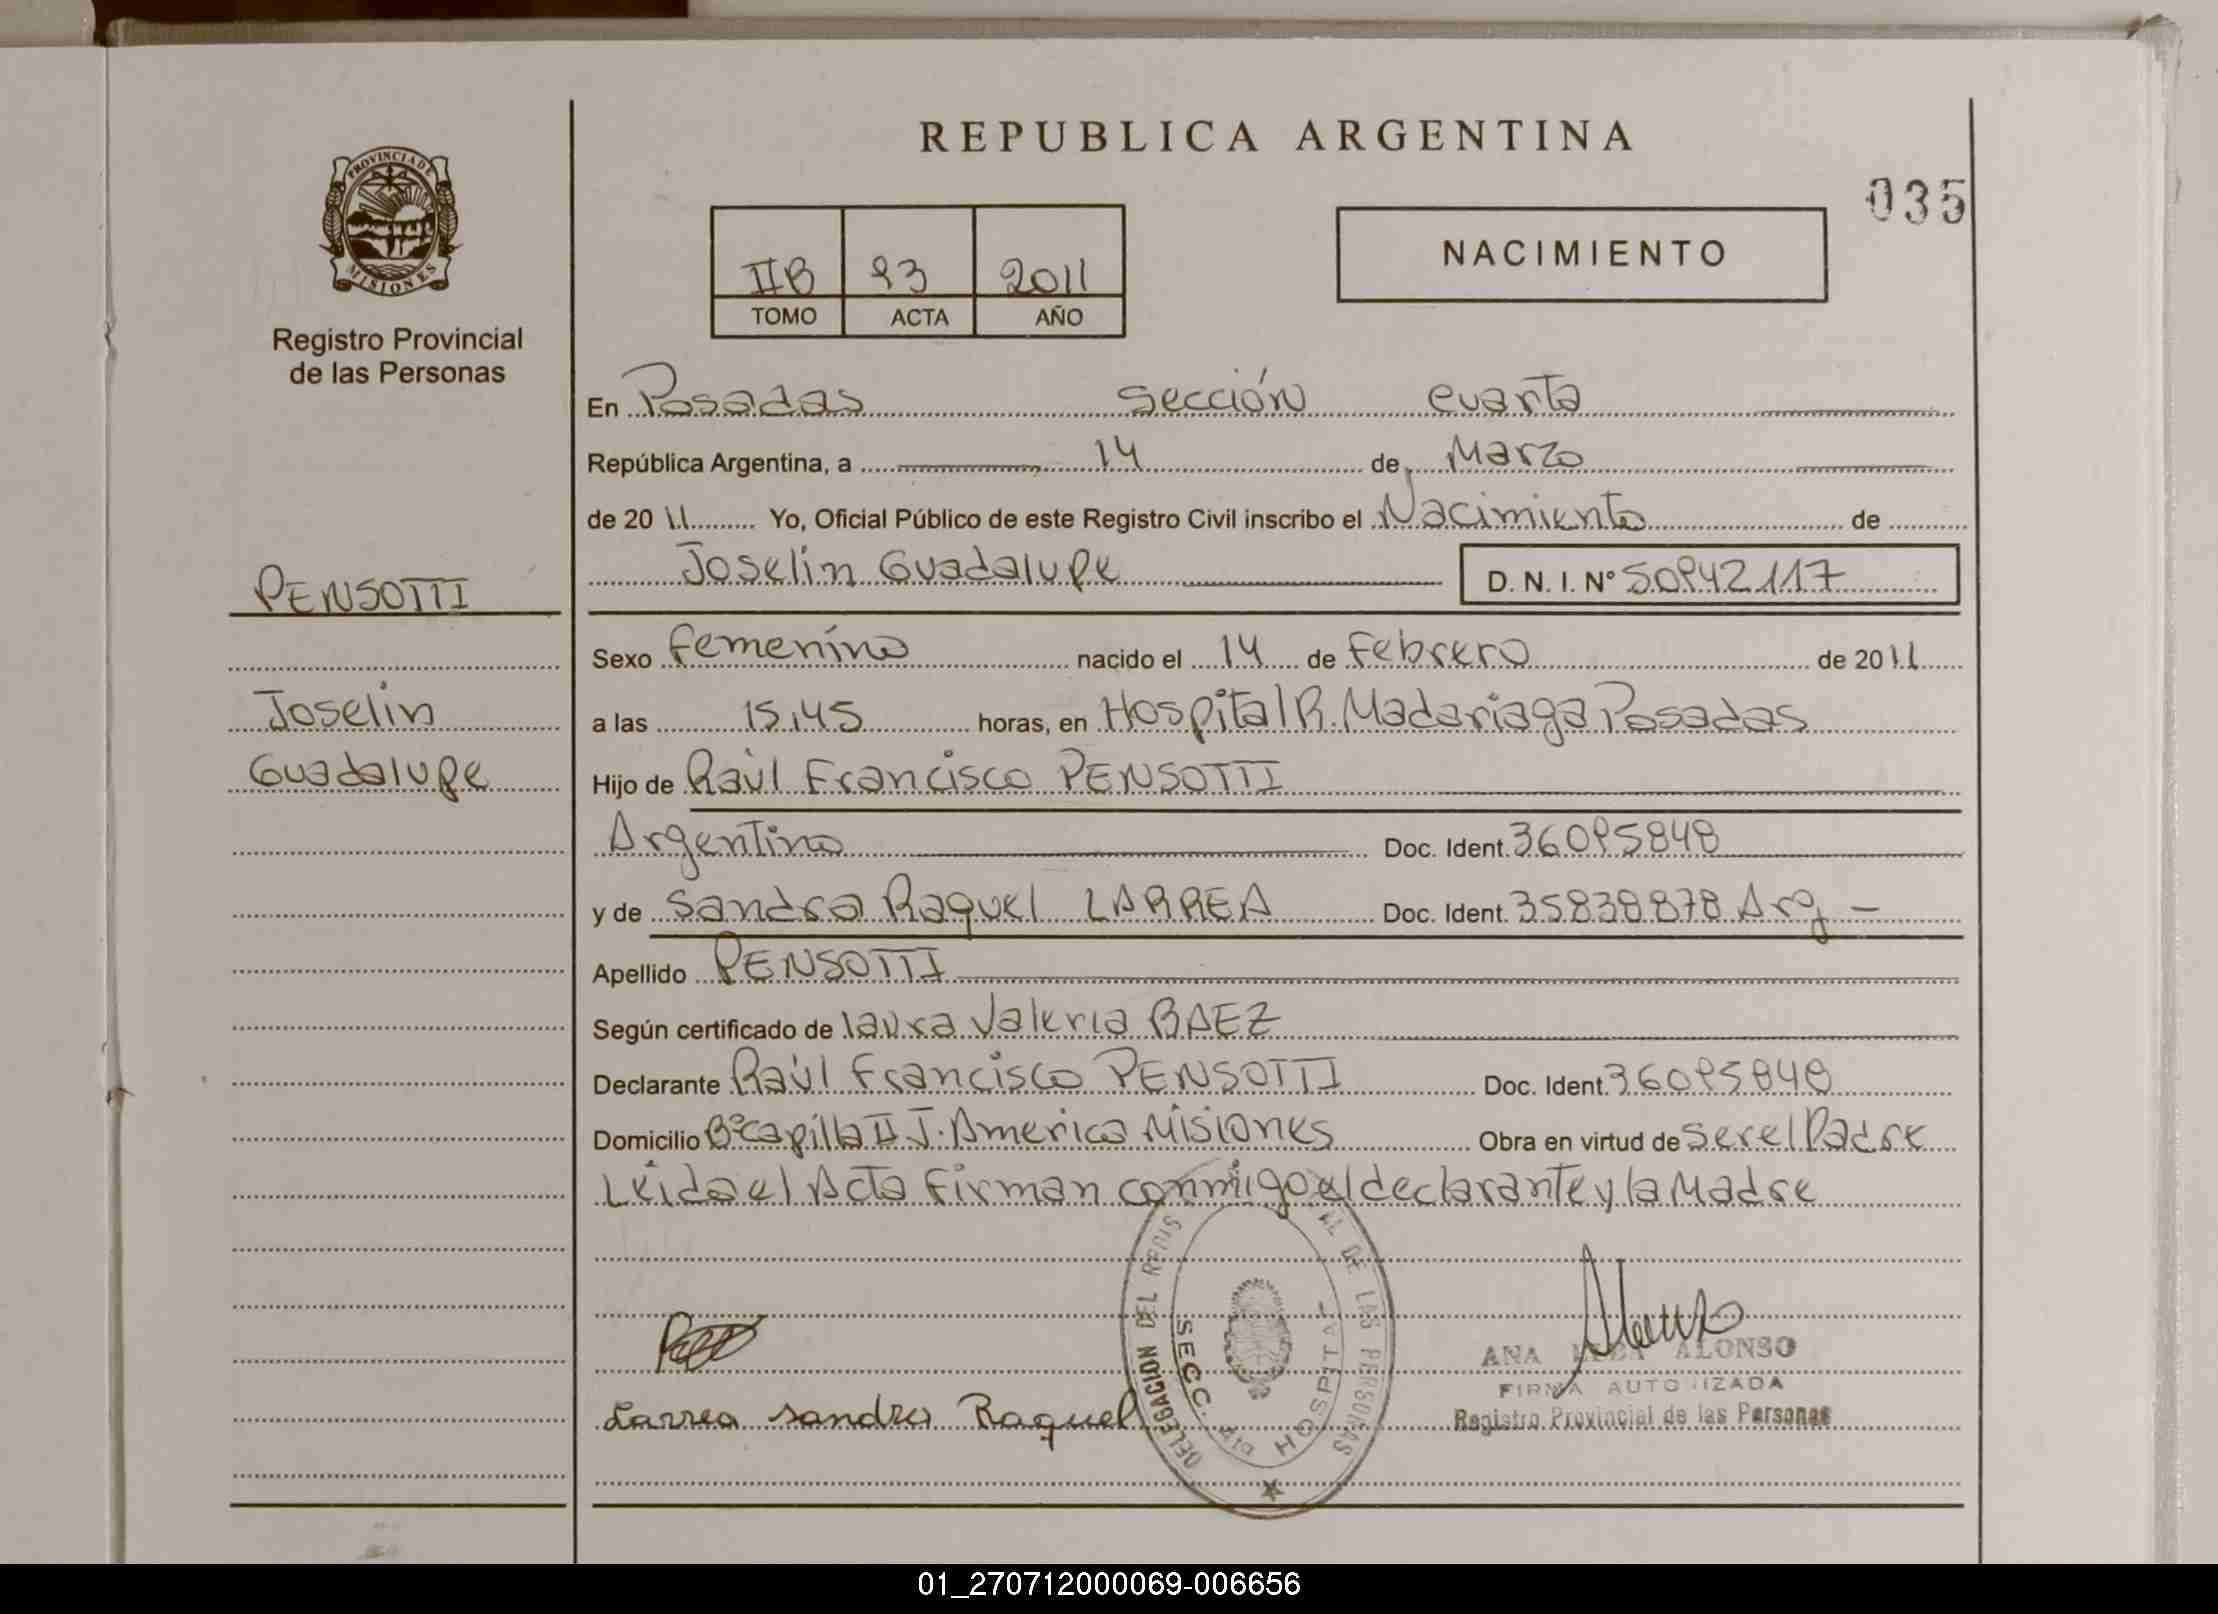 REPUBLICA ARGENTINA
035
PROVINCIA DE
MISIONES
Registro Provincial
de las Personas
IIB 93 2011
TOMO ACTA AÑO
NACIMIENTO
En Posadas sección cuarta
República Argentina, a 14 de Marzo
de 20 11 Yo, Oficial Público de este Registro Civil inscribo el Nacimiento de
Joselin Guadalupe D. N. I. N° 50942117
PENSOTTI
Joselin
Guadalupe
Sexo Femenino nacido el 14 de Febrero de 20 11
a las 15,45 horas, en Hospital R. Madariaga Posadas
Hijo de Raúl Francisco PENSOTTI
Argentino Doc. Ident. 36095848
y de Sandra Raquel LARREA Doc. Ident. 35838878 Arg –
Apellido PENSOTTI
Según certificado de laura Valeria BAEZ
Declarante Raúl Francisco PENSOTTI Doc. Ident. 36095848
Domicilio B° Capilla II J. America Misiones Obra en virtud de ser el Padre
Leida el Acta Firman conmigo el declarante y la Madre
DELEGACION DEL REGIS AL DE LAS PERSONAS
SECC. 4ta HOSPITAL
ANA ALONSO
FIRMA AUTORIZADA
Registro Provincial de las Personas
Larrea Sandra Raquel
01_270712000069-006656